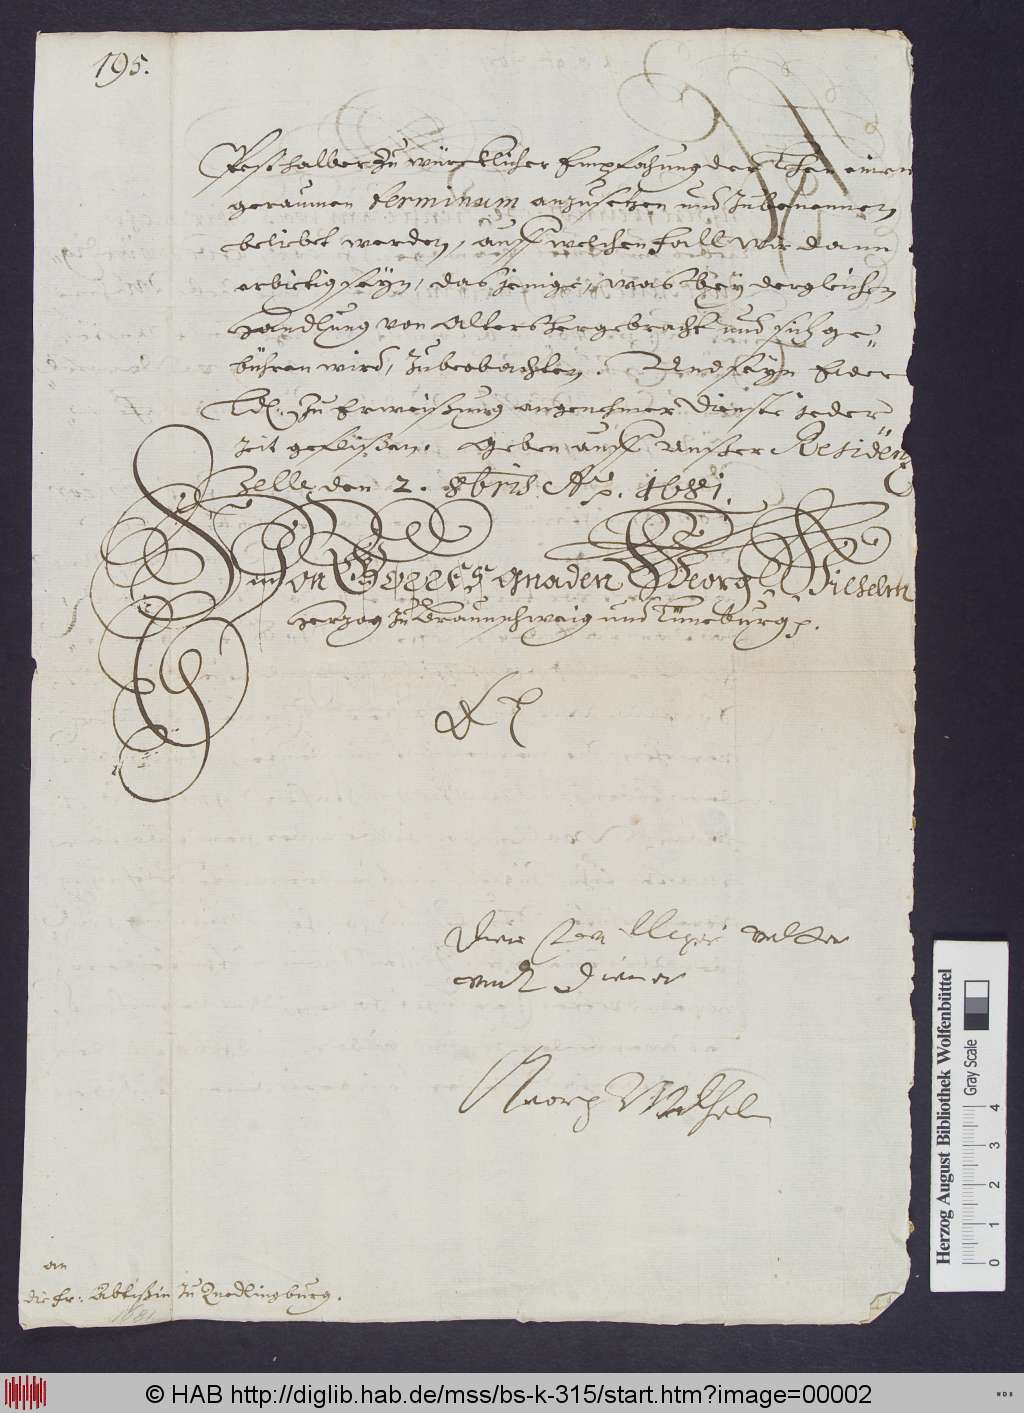 195.
deßhalber zu würcklicher Empfahung der Lehen einen
geraumen terminum anzusetzen und zubenennen
beliebet werden, auff welchen fall wir dann
erbietig seyn, dasjenige, was bey dergleichen
Handlung von Alters hergebracht und sich ge-
bühren wird, zubeobachten. Und seyn Eder
Ld. zu Erweißung angenehmer dienste jeder
zeit geflißen. Geben auff unßer Residentz
Zelle den 2. 8bris Ao. 1681.
Von Gottes gnaden Georg Wilhelm
Hertzog zu Braunschweig und Lüneburg p.
vetter
undt diener
Georg Wilhelm
an
die Fr: Abtißin zu Quedlingburg.
1681
Herzog August Bibliothek Wolfenbüttel
Gray Scale
0 1 2 3 4
© HAB http://diglib.hab.de/mss/bs-k-315/start.htm?image=00002